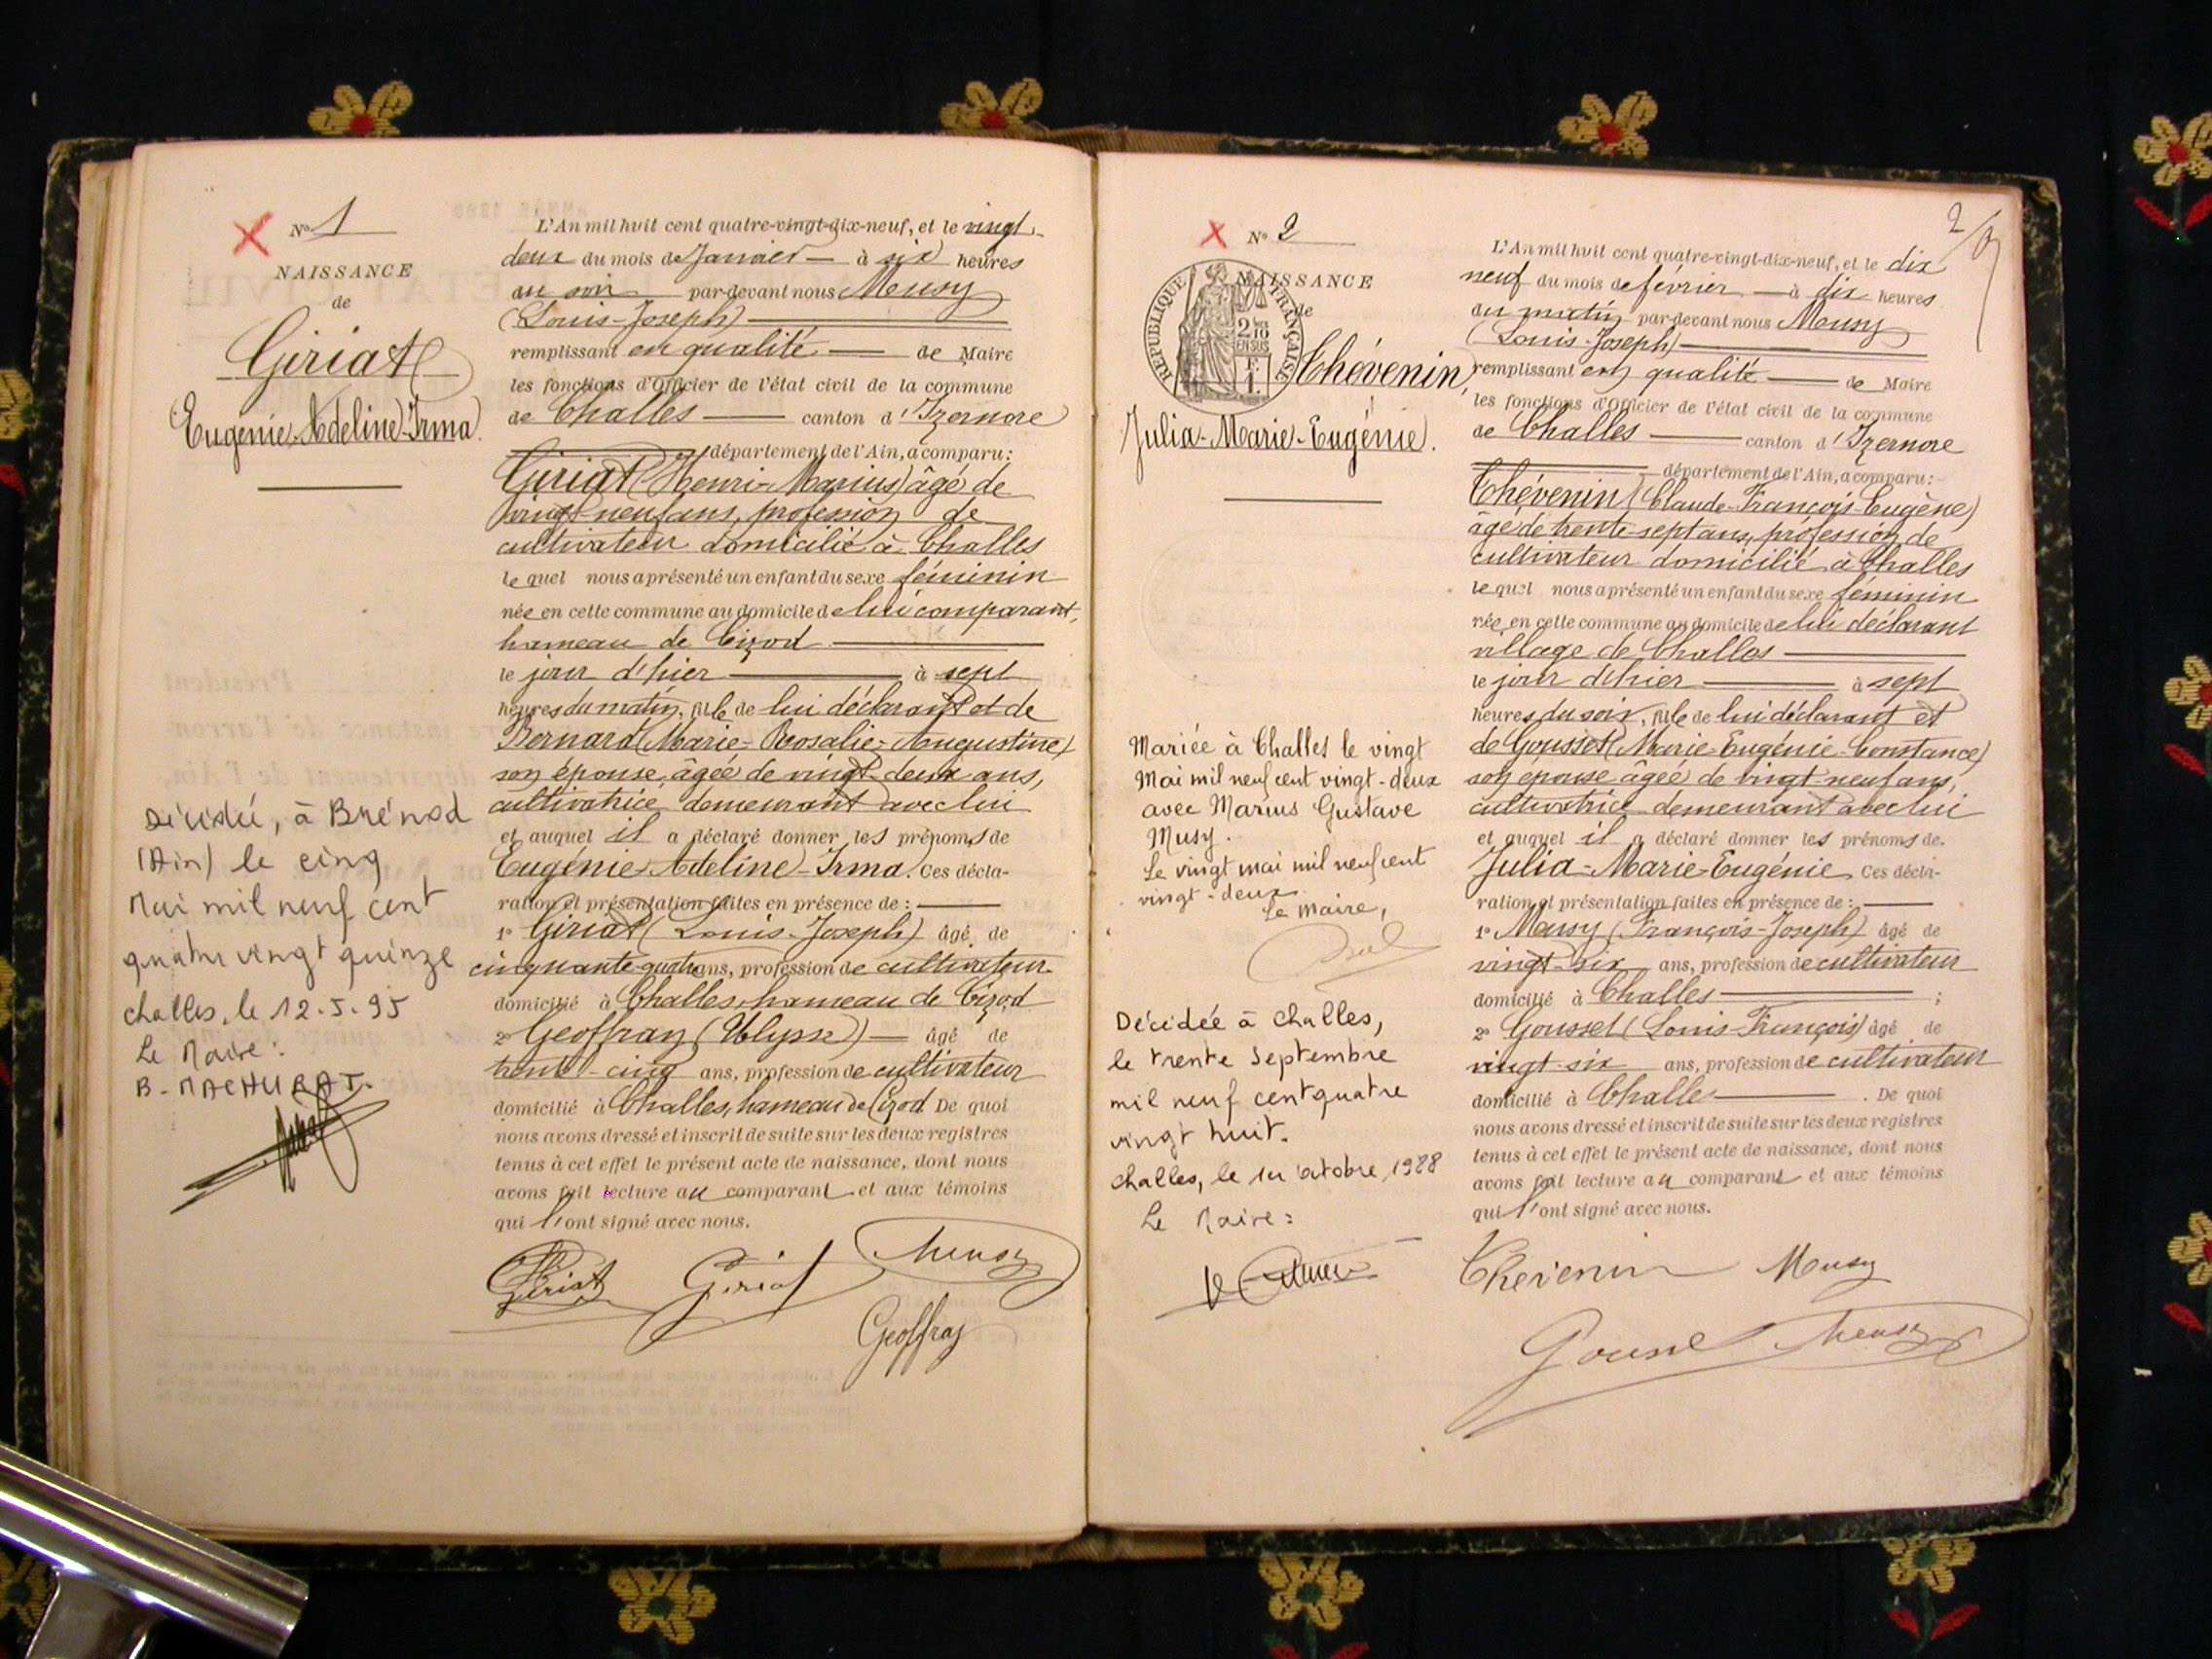 N° 1
NAISSANCE
de
Giriat
(Eugénie-Adeline-Irma).
L'An mil huit cent quatre-vingt-dix-neuf, et le vingt-
deux du mois de Janvier à six heures
du soir par-devant nous Meusy
(Louis-Joseph)
remplissant en qualité de Maire
les fonctions d'Officier de l'état civil de la commune
de Challes canton d'Izernore
département de l'Ain, a comparu:
Giriat (Henri-Marius) âgé de
vingt-neuf ans, profession de
cultivateur domicilié à Challes
lequel nous a présenté un enfant du sexe féminin
née en cette commune au domicile de lui comparant,
hameau de Cizod
le jour d'hier à sept
heures du matin, fille de lui déclarant et de
Bernard (Marie-Rosalie-Augustine)
son épouse, âgée de vingt-deux ans,
cultivatrice demeurant avec lui
et auquel il a déclaré donner les prénoms de
Eugénie-Adeline-Irma. Ces décla-
ration et présentation faites en présence de :
1° Giriat (Louis-Joseph) âgé de
cinquante-quatre ans, profession de cultivateur
domicilié à Challes, hameau de Cizod
2° Geoffray (Ulysse) âgé de
trente-cinq ans, profession de cultivateur
domicilié à Challes, hameau de Cizod De quoi
nous avons dressé et inscrit de suite sur les deux registres
tenus à cet effet le présent acte de naissance, dont nous
avons fait lecture au comparant et aux témoins
qui l'ont signé avec nous.
Giriat Giriat Meusy
Geoffray
Décédée, à Brénod
(Ain) le cinq
Mai mil neuf cent
quatre vingt quinze
challes, le 12.5.95
Le Maire:
B. MACHURAT.
2
N° 2
NAISSANCE
de
REPUBLIQUE FRANÇAISE
2/10
EN SUS
Thévenin,
Julia-Marie-Eugénie.
L'An mil huit cent quatre-vingt-dix-neuf, et le dix
neuf du mois de février à dix heures
du matin par-devant nous Meusy
(Louis-Joseph)
remplissant en qualité de Maire
les fonctions d'Officier de l'état civil de la commune
de Challes canton d'Izernore
département de l'Ain, a comparu:
Thévenin (Claude-François-Eugène)
âgé de trente-sept ans, profession de
cultivateur domicilié à Challes
lequel nous a présenté un enfant du sexe féminin
née en cette commune au domicile de lui déclarant
village de Challes
le jour d'hier à sept
heures du soir, fille de lui déclarant et
de Gousset (Marie-Eugénie-Constance)
son épouse âgée de vingt-neuf ans,
cultivatrice demeurant avec lui
et auquel il a déclaré donner les prénoms de.
Julia-Marie-Eugénie Ces décla-
ration et présentation faites en présence de :
1° Meusy (François-Joseph) âgé de
vingt-six ans, profession de cultivateur
domicilié à Challes ;
2° Gousset (Louis-François) âgé de
vingt-six ans, profession de cultivateur
domicilié à Challes . De quoi
nous avons dressé et inscrit de suite sur les deux registres
tenus à cet effet le présent acte de naissance, dont nous
avons fait lecture au comparant et aux témoins
qui l'ont signé avec nous.
Thevenin Meusy
Gousset Meusy
Mariée à Challes le vingt
Mai mil neuf cent vingt-deux
avec Marius Gustave
Musy.
Le vingt mai mil neuf cent
vingt-deux.
Le Maire,
Décédée à challes,
le trente Septembre
mil neuf cent quatre
vingt huit.
challes, le 1er octobre 1988
Le Maire: